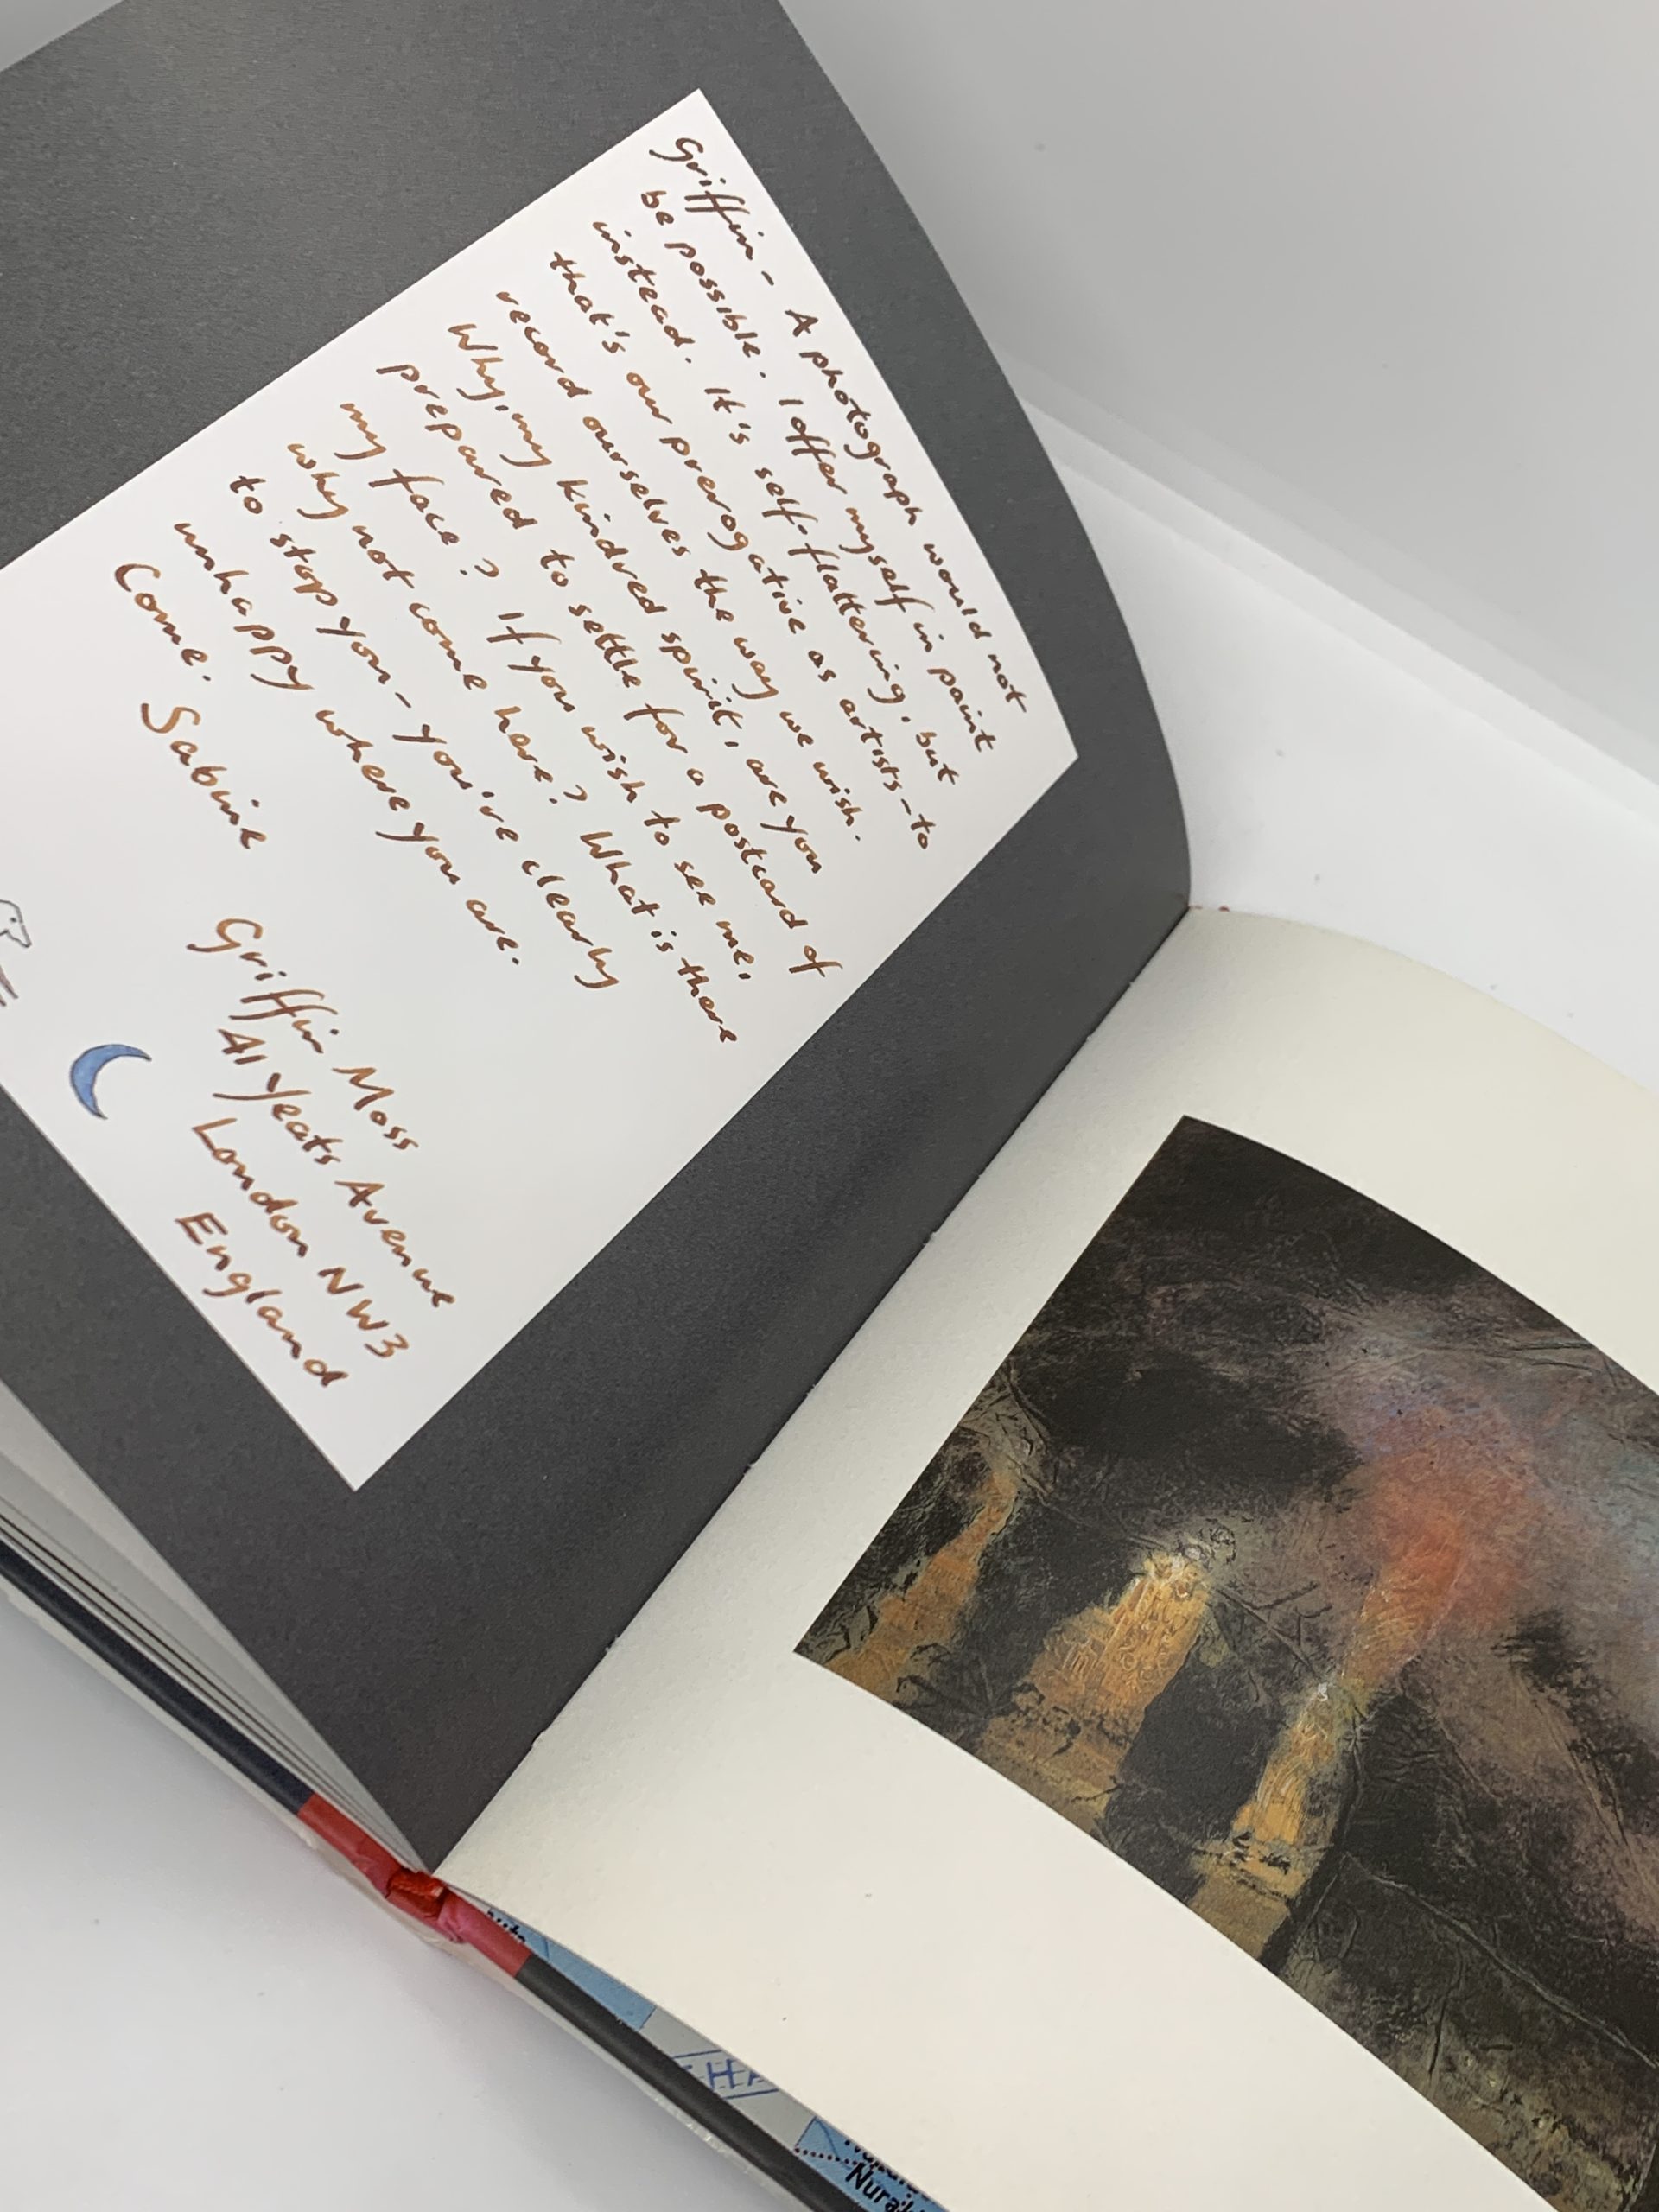 Griffin - A photograph would not
be possible. I offer myself in paint
instead. It's self-flattering, but
that's our prerogative as artists - to
record ourselves the way we wish.
Why, my kindred spirit, are you
prepared to settle for a postcard of
my face? If you wish to see me,
why not come here? What is there
to stop you - you're clearly
unhappy where you are.
Come. Sabine
Griffin Moss
41 Yeats Avenue
London NW3
England